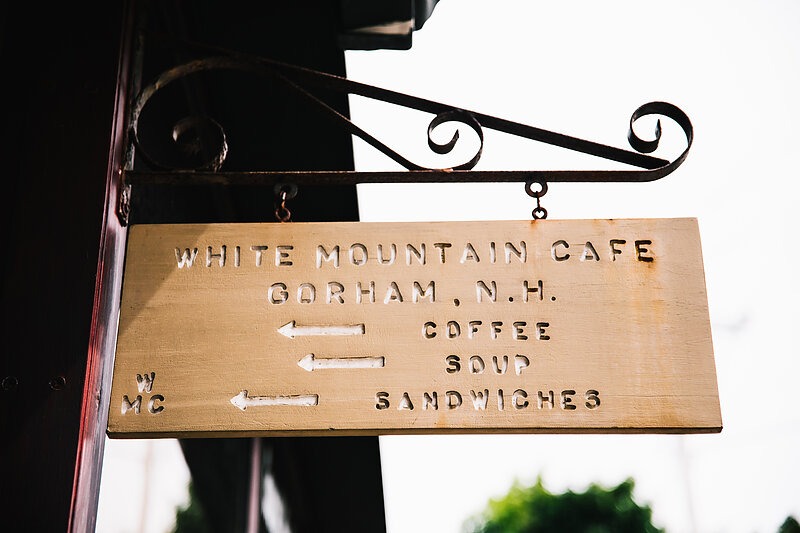 WHITE MOUNTAIN CAFE
GORHAM, N.H.
COFFEE
SOUP
W
MC
SANDWICHES